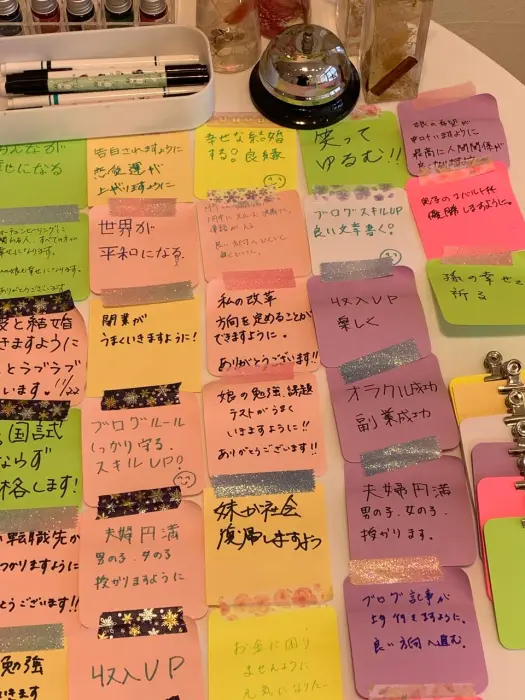 みんなが
幸せになる
告白されますように
恋愛運が
上がりますように
幸せな結婚
する。良縁
笑って
ゆるむ!!
世界が
平和になる。
ブログスキルUP
良い文章書く。
優勝しますように。
孫の幸せを
祈る
と結婚
きますように
とラブラブ
います。11/22
開業が
うまくいきますように!
私の改革
方向を定めることが
できますように。
ありがとうございます!!
収入UP
楽しく
国試
ならず
格します!
ブログルール
しっかり守る。
スキルUP!
娘の勉強、課題
テストがうまく
いきますように!!
ありがとうございます!!
オラクル成功
副業成功
転職先が
つかりますように
とうございます!!
夫婦円満
男の子、女の子
授かりますように
妹が社会
復帰しますよう
夫婦円満
男の子、女の子、
授かります。
勉強
収入UP
お金に困り
ませんように
元気に
ブログ記事が
ますように。
良い方向へ進む。